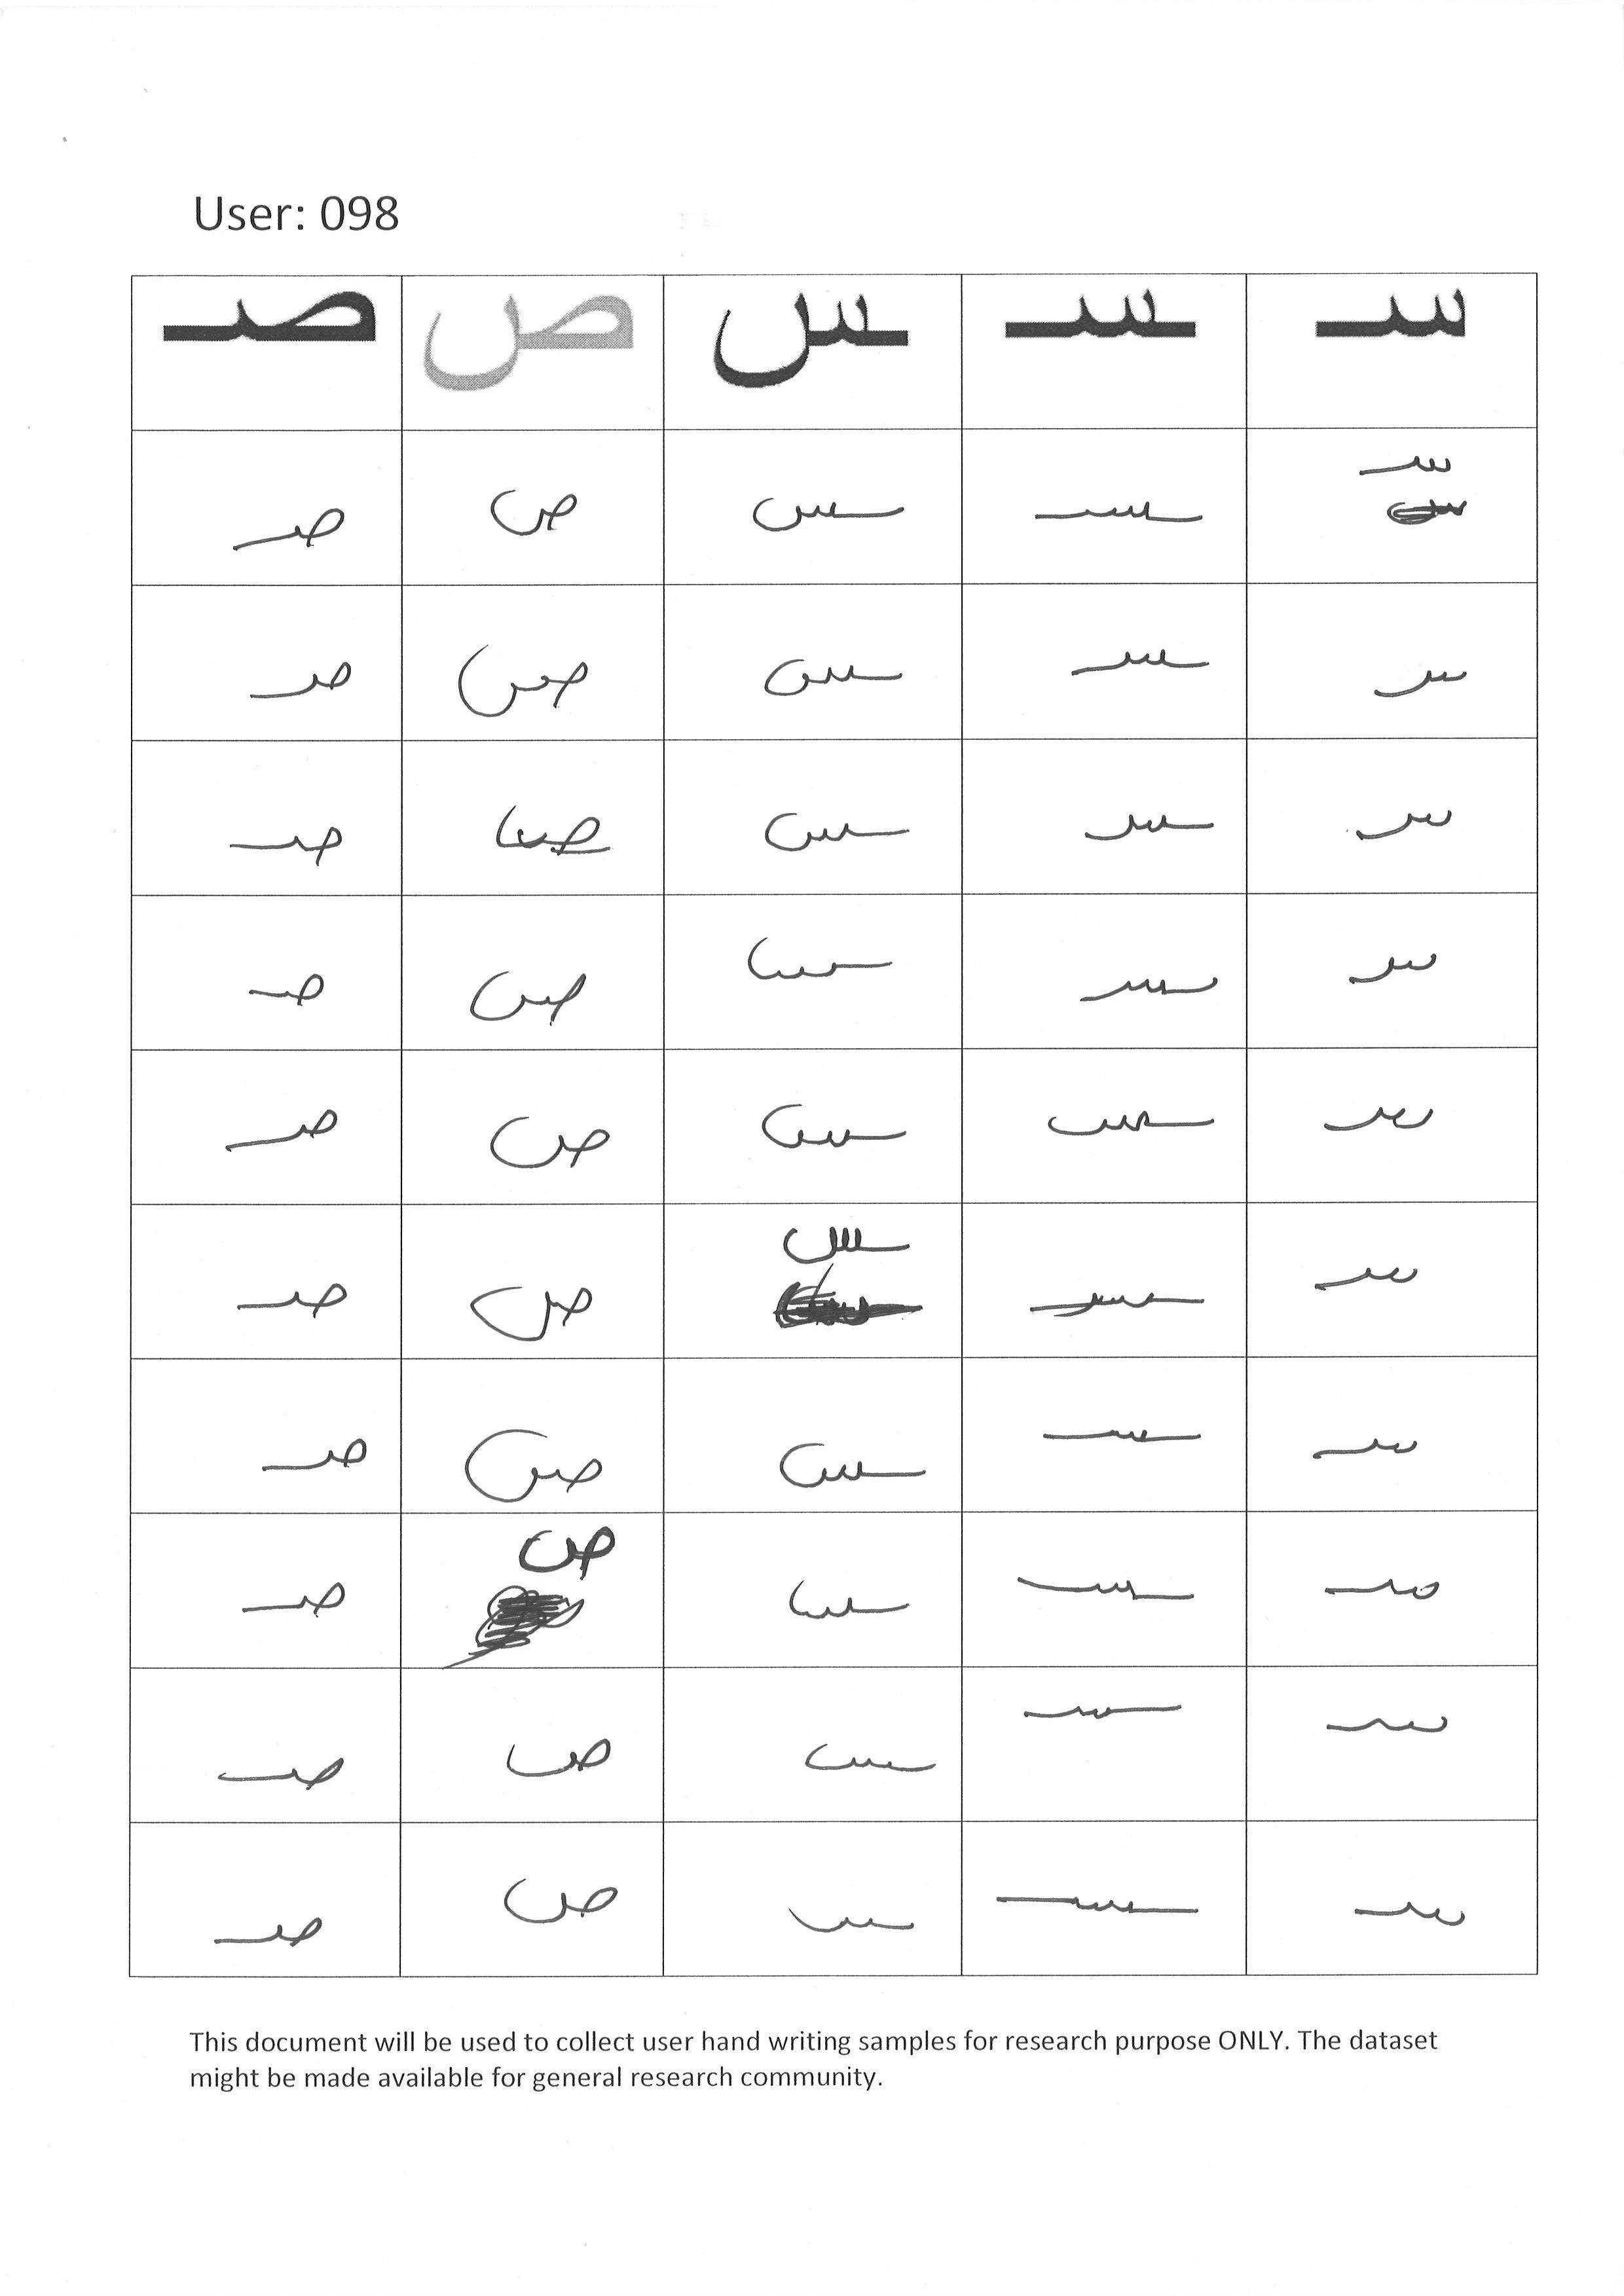 User: 098
سـ ـسـ ـس ص صـ
سـ ـسـ ـس ص صـ
سـ ـسـ ـس ص صـ
سـ ـسـ ـس ص صـ
سـ ـسـ ـس ص صـ
سـ ـسـ ـس ص صـ
سـ ـسـ ـس ص صـ
سـ ـسـ ـس ص صـ
سـ ـسـ ـس ص صـ
سـ ـسـ ـس ص صـ
سـ ـسـ ـس ص صـ
This document will be used to collect user hand writing samples for research purpose ONLY. The dataset
might be made available for general research community.